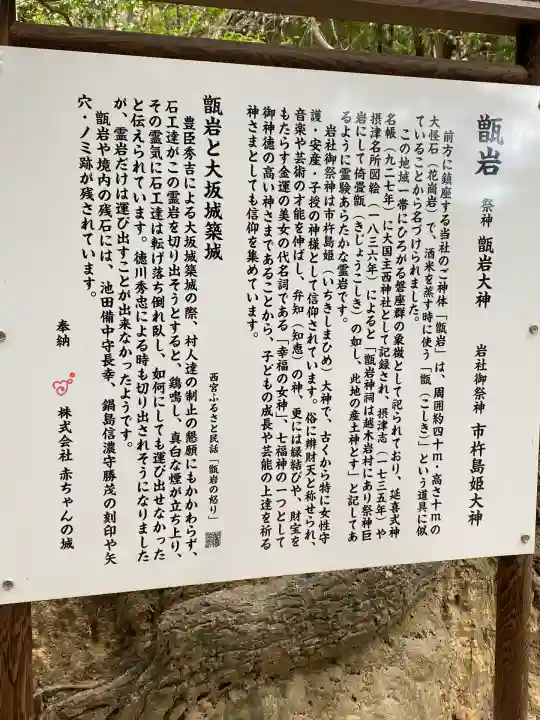 甑岩 祭神 甑岩大神 岩社御祭神 市杵島姫大神
前方に鎮座する当社のご神体「甑岩」は、周囲約四十m・高さ十mの
大怪石(花崗岩)で、酒米を蒸す時に使う「甑(こしき)」という道具に似
ていることから名づけられました。
この地域一帯にひろがる磐座群の象徴として祀られており、延喜式神
名帳(九二七年)に大国主西神社として記録され、摂津志(一七三五年)や
摂津名所図絵(一八三六年)によると「甑岩神祠は越木岩村にあり祭神巨
岩にして倚畳甑(きじょうこしき)の如し、此地の産土神とす」と記してあ
るように霊験あらたかな霊岩です。
岩社御祭神は市杵島姫(いちきしまひめ)大神で、古くから特に女性守
護・安産・子授の神様として信仰されています。俗に辨財天と称せられ、
音楽や芸術の才能を伸ばし、弁知(知恵)の神、更には縁結びや、財宝を
もたらす金運の美女の代名詞である「幸福の女神」、七福神の一つとして
御神徳の高い神さまであることから、子どもの成長や芸能の上達を祈る
神さまとしても信仰を集めています。
甑岩と大坂城築城
西宮ふるさと民話「甑岩の怒り」
豊臣秀吉による大坂城築城の際、村人達の制止の懇願にもかかわらず、
石工達がこの霊岩を切り出そうとすると、鶏鳴し、真白な煙が立ち上り、
その霊気に石工達は転げ落ち倒れ臥し、如何にしても運び出せなかった
と伝えられています。徳川秀忠による時も切り出されそうになりました
が、霊岩だけは運び出すことが出来なかったようです。
甑岩や境内の残石には、池田備中守長幸、鍋島信濃守勝茂の刻印や矢
穴・ノミ跡が残されています。
奉納 株式会社 赤ちゃんの城